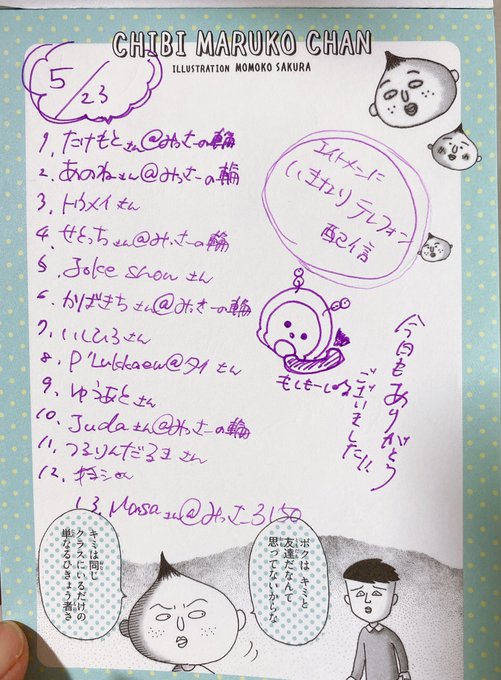 CHIBI MARUKO CHAN
ILLUSTRATION MOMOKO SAKURA
5/23
1. たけもとさん@みっさーの輪
2. あのねさん@みっさーの輪
3. トウメイさん
4. せとっちさん@みっさーの輪
5. Joke showさん
6. かばきちさん@みっさーの輪
7. いしひろさん
8. P'Lukkaew@タイさん
9. ゆうあとさん
10. Judaさん@みっさーの輪
11. つるりんだるまさん
12.
13. Masaさん@みっさー3150
エイトメンに
いきなり テレフォン
配信
もしもーし
今日もありがとう
ございました!!
ボクは キミと
友達だなんて
思ってないからな
キミは同じ
クラスにいるだけの
単なるひきょう者さ